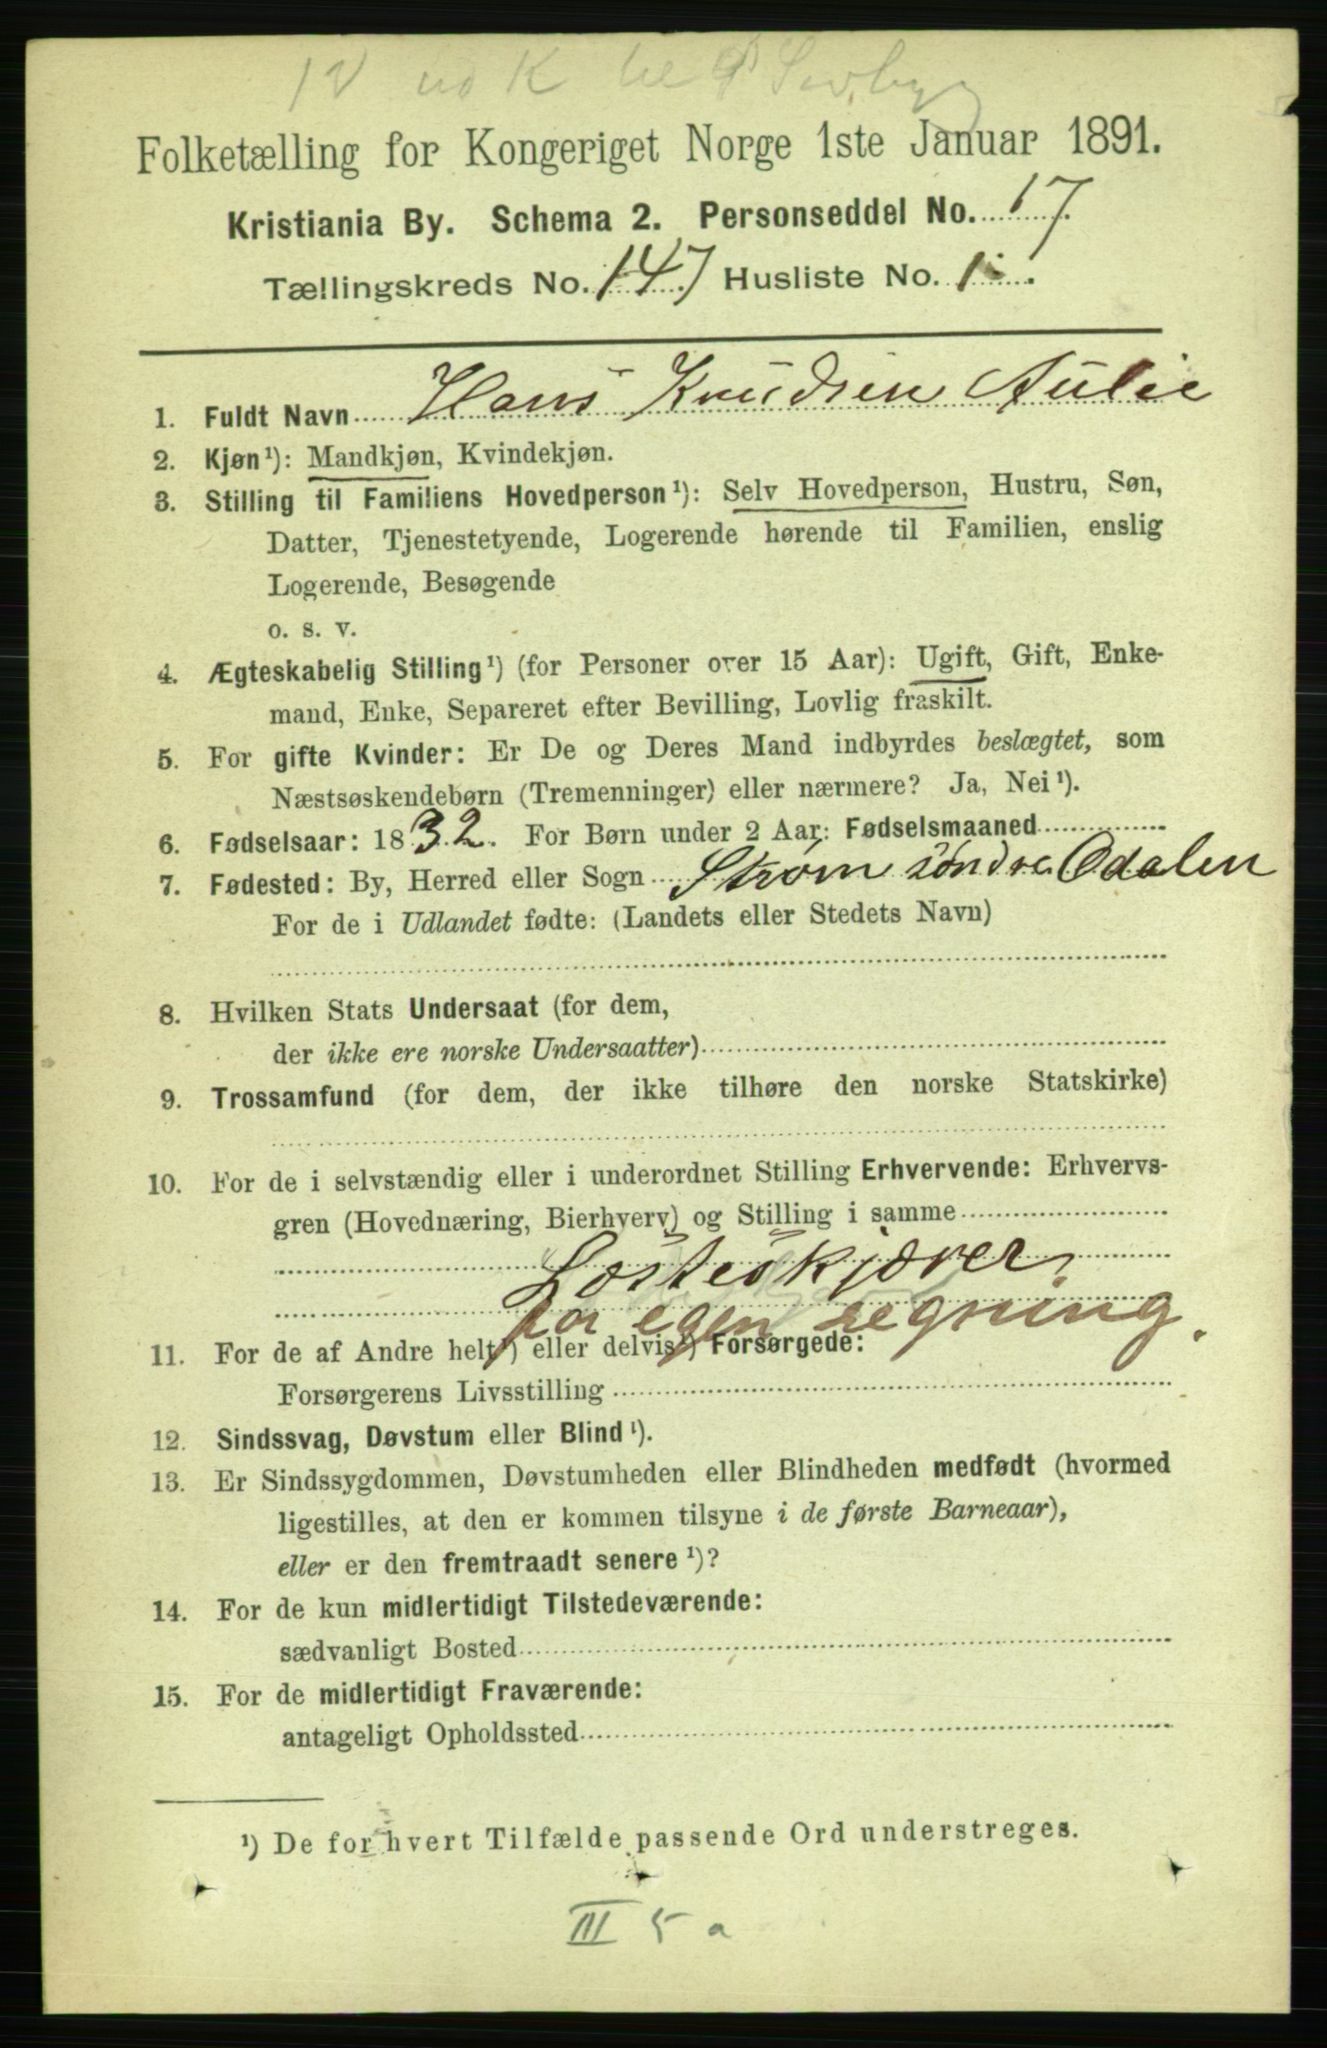 Folketælling for Kongeriget Norge 1ste Januar 1891.
Kristiania By. Schema 2. Personseddel No. 17.
Tællingskreds No. 147 Husliste No. 1.
1. Fuldt Navn Hans Knudsen Aulie
2. Kjøn¹): Mandkjøn, Kvindekjøn.
3. Stilling til Familiens Hovedperson¹): Selv Hovedperson, Hustru, Søn,
Datter, Tjenestetyende, Logerende hørende til Familien, enslig
Logerende, Besøgende
o. s. v.
4. Ægteskabelig Stilling¹) (for Personer over 15 Aar): Ugift, Gift, Enke-
mand, Enke, Separeret efter Bevilling, Lovlig fraskilt.
5. For gifte Kvinder: Er De og Deres Mand indbyrdes beslægtet, som
Næstsøskendebørn (Tremenninger) eller nærmere? Ja, Nei¹).
6. Fødselsaar: 1832. For Børn under 2 Aar: Fødselsmaaned
7. Fødested: By, Herred eller Sogn Strøm søndre Odalen
For de i Udlandet fødte: (Landets eller Stedets Navn)
8. Hvilken Stats Undersaat (for dem,
der ikke ere norske Undersaatter)
9. Trossamfund (for dem, der ikke tilhøre den norske Statskirke)
10. For de i selvstændig eller i underordnet Stilling Erhvervende: Erhvervs-
gren (Hovednæring, Bierhverv) og Stilling i samme
Læsteskjærer
for egen regning.
11. For de af Andre helt¹) eller delvis¹) Forsørgede:
Forsørgerens Livsstilling
12. Sindssvag, Døvstum eller Blind¹).
13. Er Sindssygdommen, Døvstumheden eller Blindheden medfødt (hvormed
ligestilles, at den er kommen tilsyne i de første Barneaar),
eller er den fremtraadt senere¹)?
14. For de kun midlertidigt Tilstedeværende:
sædvanligt Bosted
15. For de midlertidigt Fraværende:
antageligt Opholdssted
¹) De for hvert Tilfælde passende Ord understreges.
III 5 a